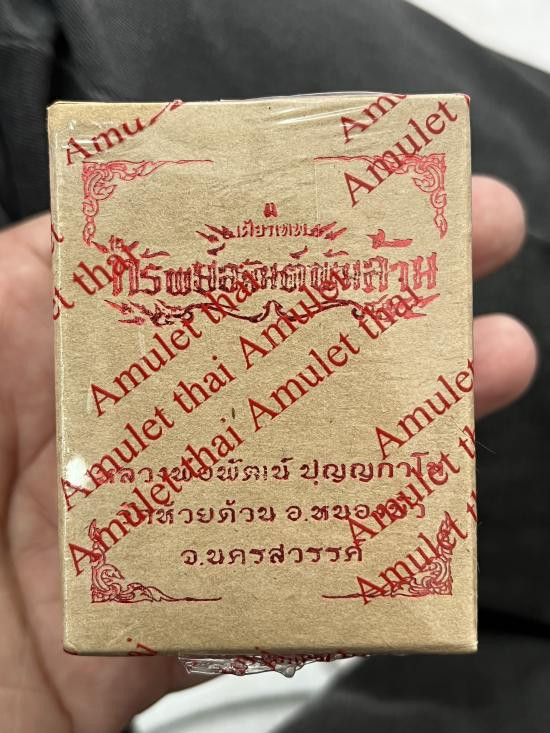 Amulet thai
Amulet
เศียรเทพ
ทรัพย์อนันต์พันล้าน
Amulet thai Amulet thai
Amulet thai Amulet thai
หลวงพ่อพัฒน์ ปุญญกาโม
วัดห้วยด้วน อ.หนองบัว
จ.นครสวรรค์